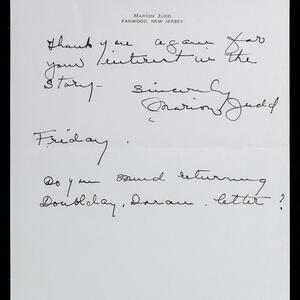 MARION JUDD
FANWOOD, NEW JERSEY
Thank you again for
your interest in the
story—
Sincerely
Marion Judd
Friday.
Do you mind returning
Doubleday, Doran letter?